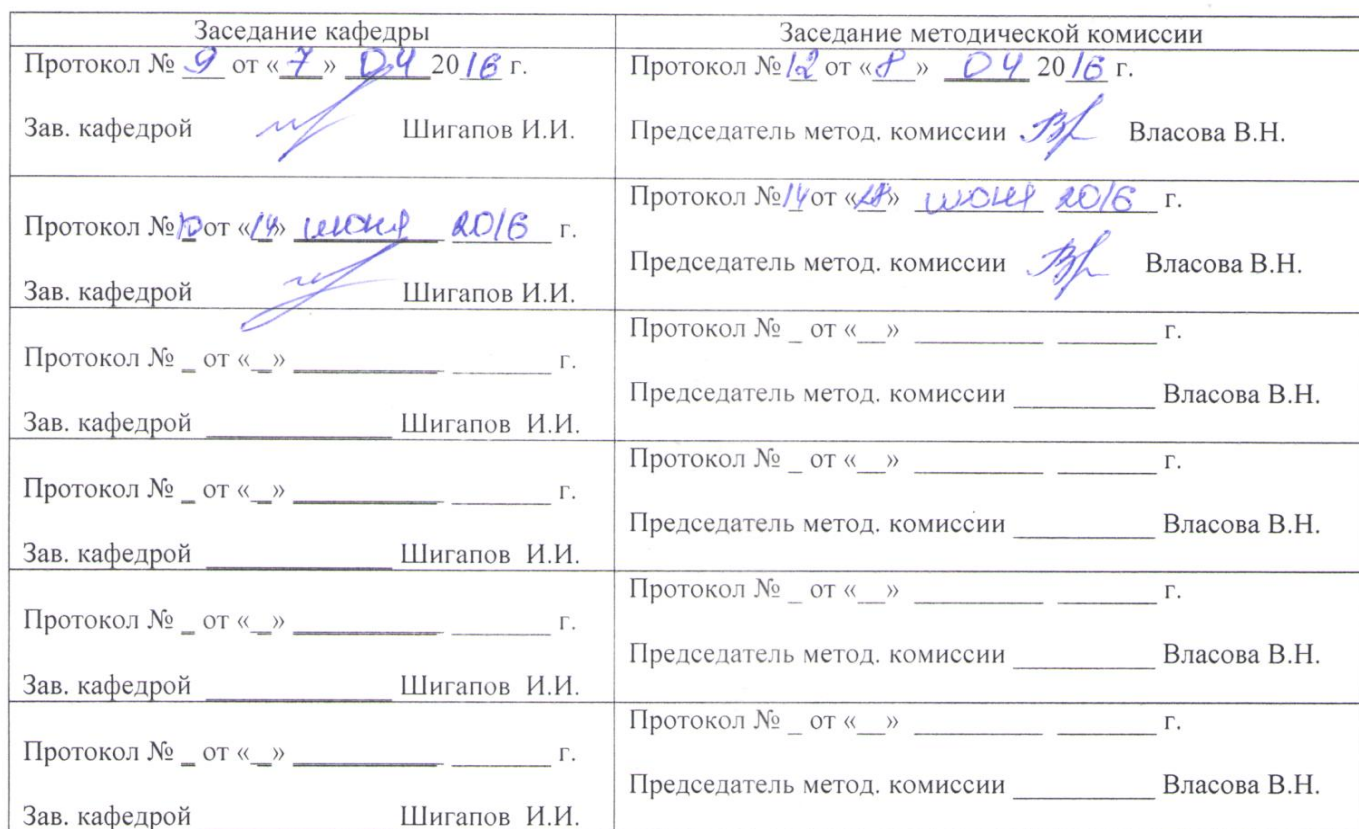 Заседание кафедры
Заседание методической комиссии
Протокол № 9 от «7» 04 2016 г.
Зав. кафедрой Шигапов И.И.
Протокол № 12 от «8» 04 2016 г.
Председатель метод. комиссии Власова В.Н.
Протокол № 10 от «14» июня 2016 г.
Зав. кафедрой Шигапов И.И.
Протокол № 14 от « » июня 2016 г.
Председатель метод. комиссии Власова В.Н.
Протокол № _ от «_» __________ _______ г.
Зав. кафедрой _____________ Шигапов И.И.
Протокол № _ от «__» _________ _______ г.
Председатель метод. комиссии __________ Власова В.Н.
Протокол № _ от «_» __________ _______ г.
Зав. кафедрой _____________ Шигапов И.И.
Протокол № _ от «__» _________ _______ г.
Председатель метод. комиссии __________ Власова В.Н.
Протокол № _ от «_» __________ _______ г.
Зав. кафедрой _____________ Шигапов И.И.
Протокол № _ от «__» _________ _______ г.
Председатель метод. комиссии __________ Власова В.Н.
Протокол № _ от «_» __________ _______ г.
Зав. кафедрой _____________ Шигапов И.И.
Протокол № _ от «__» _________ _______ г.
Председатель метод. комиссии __________ Власова В.Н.